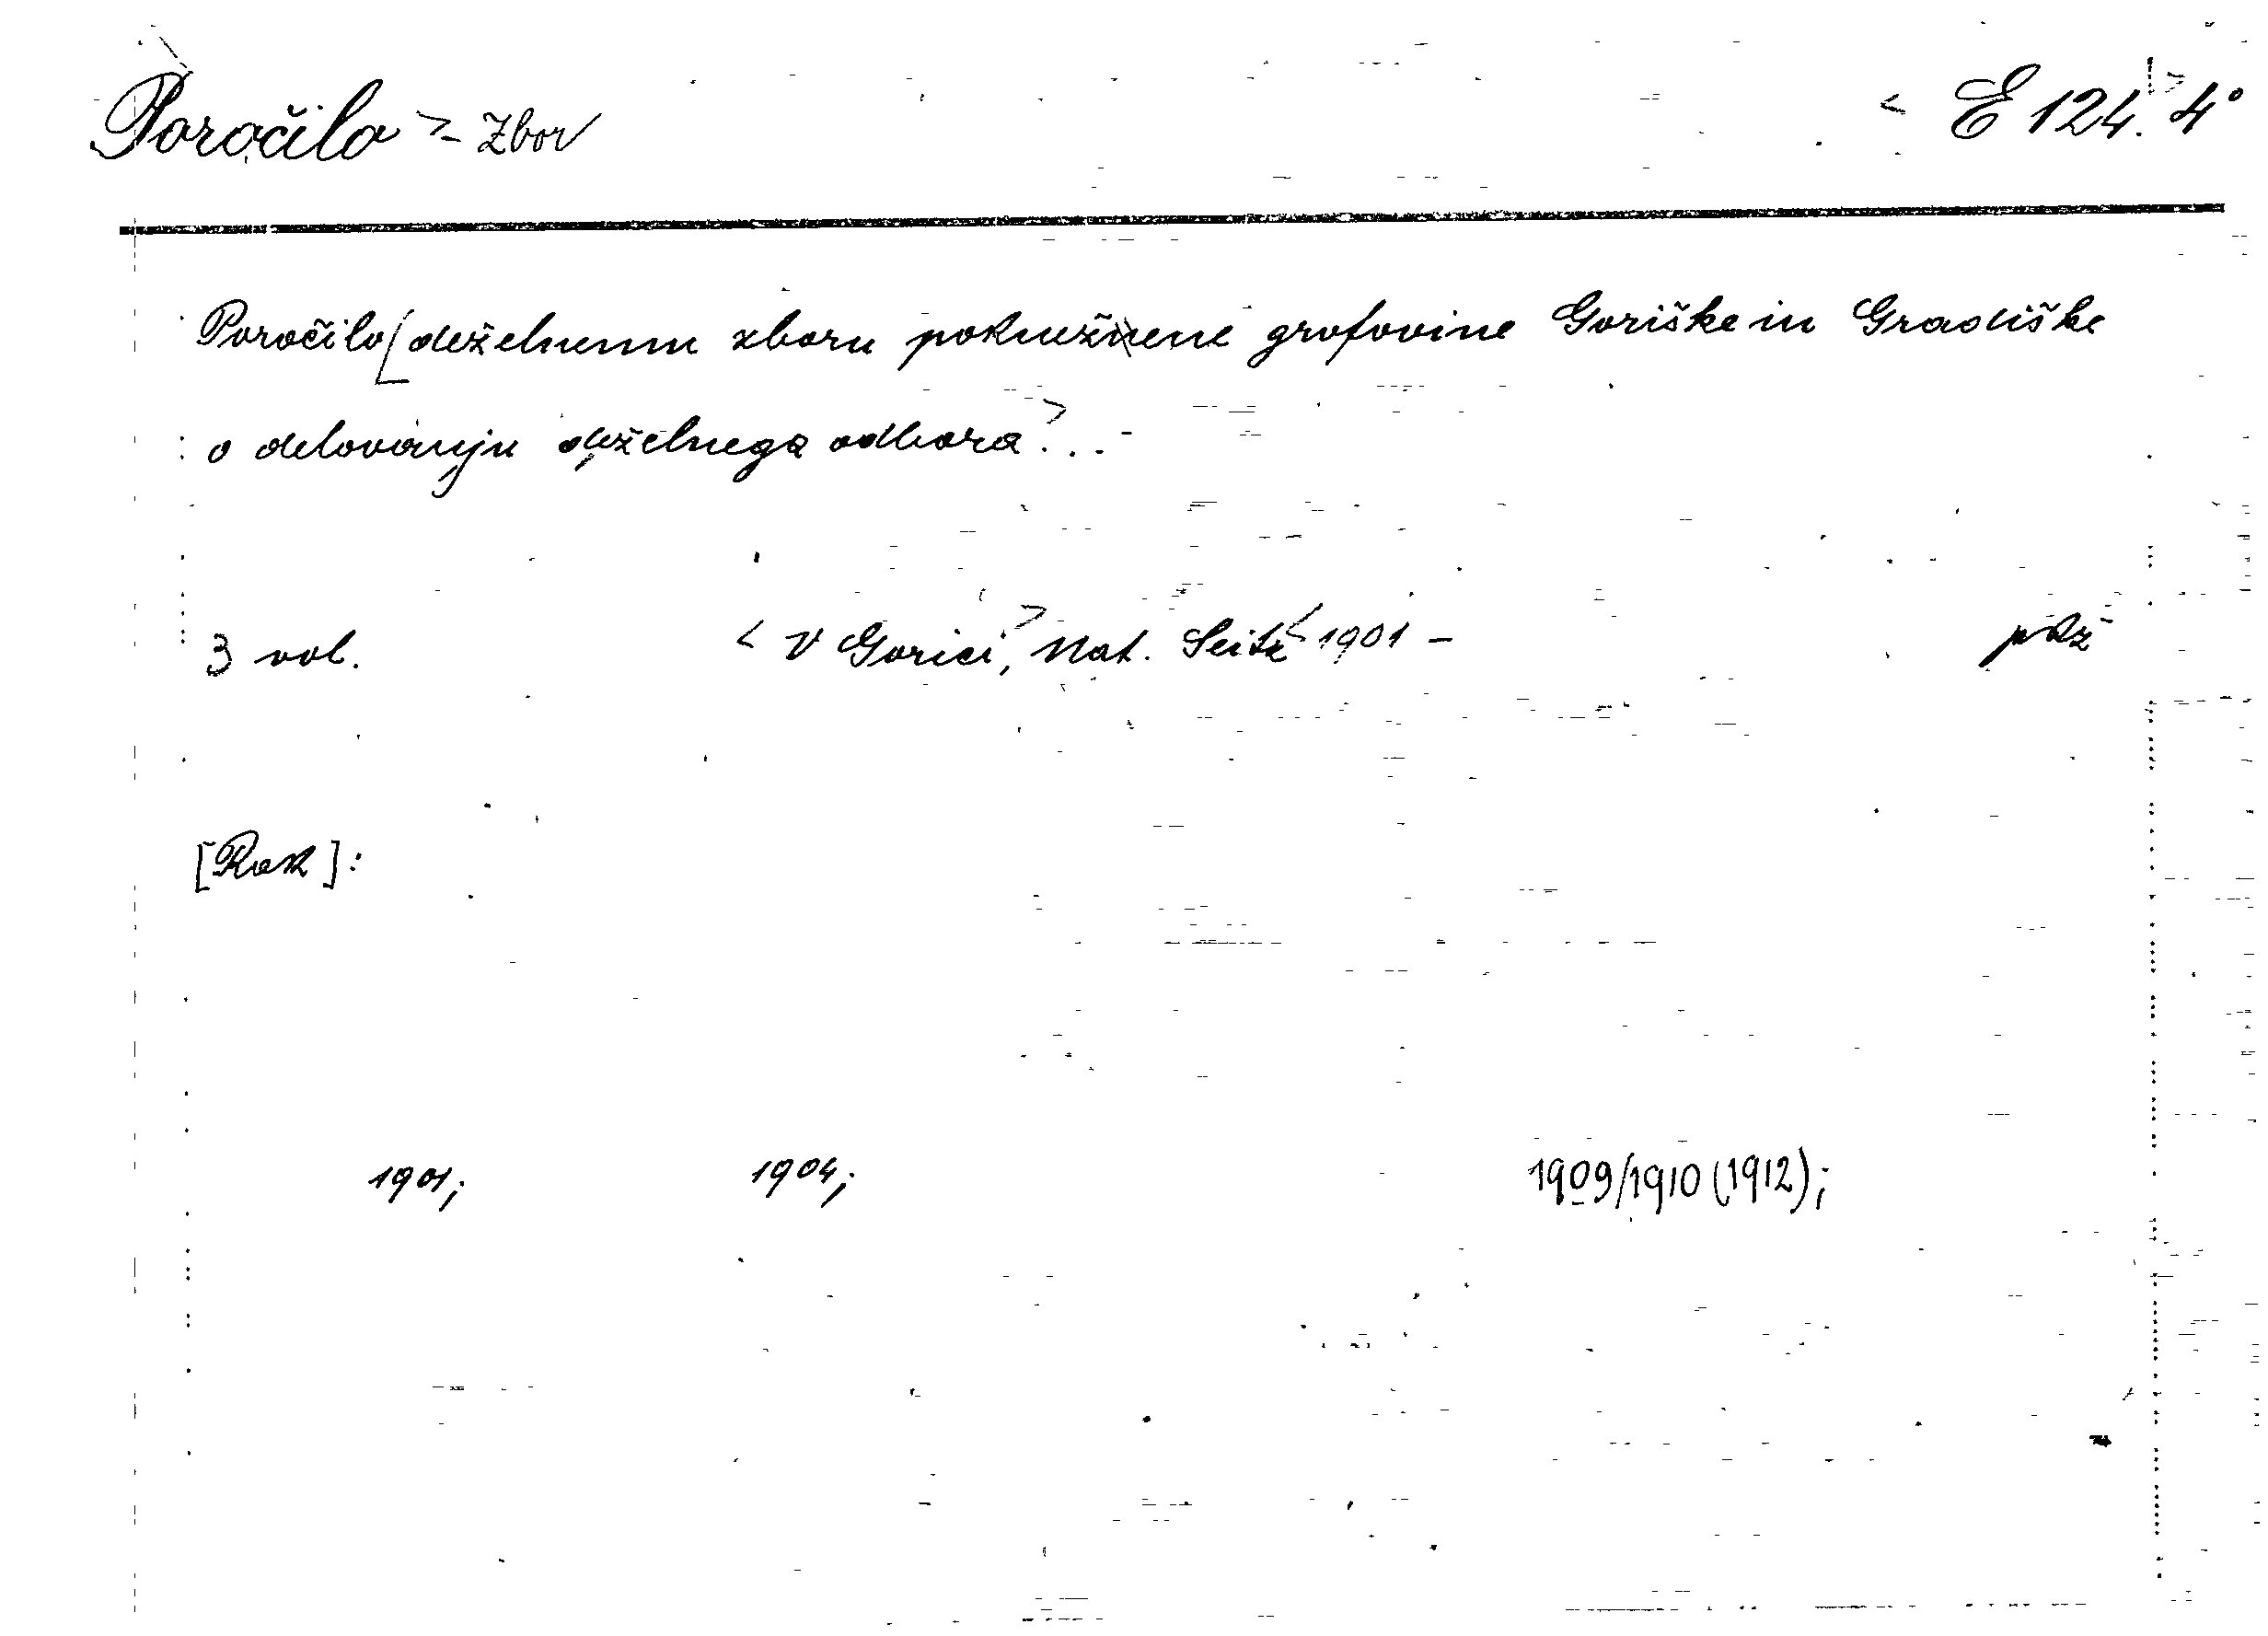 Poročilo > - Zbor < E 124. > 4°
Poročilo [deželnemu zboru poknežene grofovine Goriške in Gradiške
o delovanju deželnega odbora > . . . -
3 vol. < V Gorici, > Nat. Seitz < 1901 -
1901; 1904; 1909/1910 (1912);